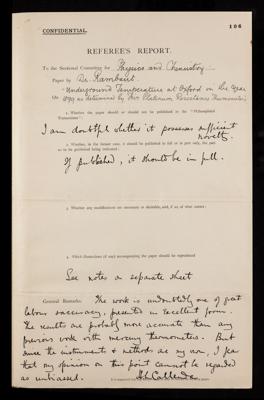 106
CONFIDENTIAL.
REFEREE'S REPORT.
To the Sectional Committee for Physics and Chemistry
Paper by Dr. Rambaut.
"Underground Temperature at Oxford in the Year
On 1899 as determined by five Platinum Resistance Thermometers
1. Whether the paper should or should not be published in the "Philosophical
Transactions":
I am doubtful whether it possesses sufficient
novelty.
2. Whether, in the former case, it should be published in full or in part only, the part
to be published being indicated:
If published, it should be in full.
3. Whether any modifications are necessary or desirable, and, if so, of what nature:
4. Which illustrations (if any) accompanying the paper should be reproduced
See notes on separate sheet
General Remarks. The work is undoubtedly one of great
labour & accuracy, presented in excellent form.
The results are probably more accurate than any
previous work with mercury thermometers. But
since the instruments & methods are my own, I fear
that my opinion on this point cannot be regarded
as unbiassed. H L Callendar